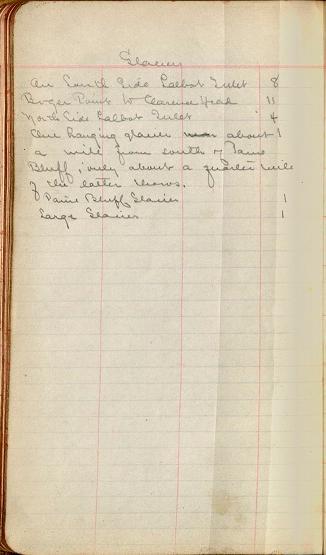 Glaciers
On South Side Talbot Inlet 8
Boger Point to Clarence Head 11
North Side Talbot Inlet 4
One hanging glacier about 1
a mile from south of Paine
Bluff, only about a quarter mile
of the latter shows.
Paine Bluff Glacier 1
Large Glacier 1